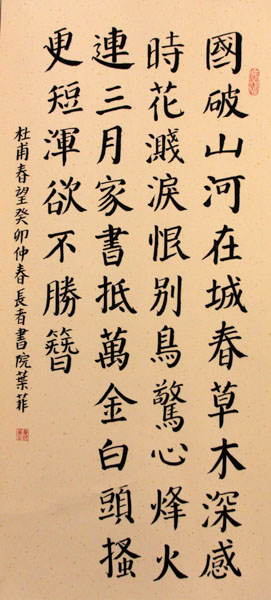 國破山河在城春草木深感
時花濺淚恨别鳥驚心烽火
連三月家書抵萬金白頭搔
更短渾欲不勝簪
杜甫春望癸卯仲春長者書院葉菲